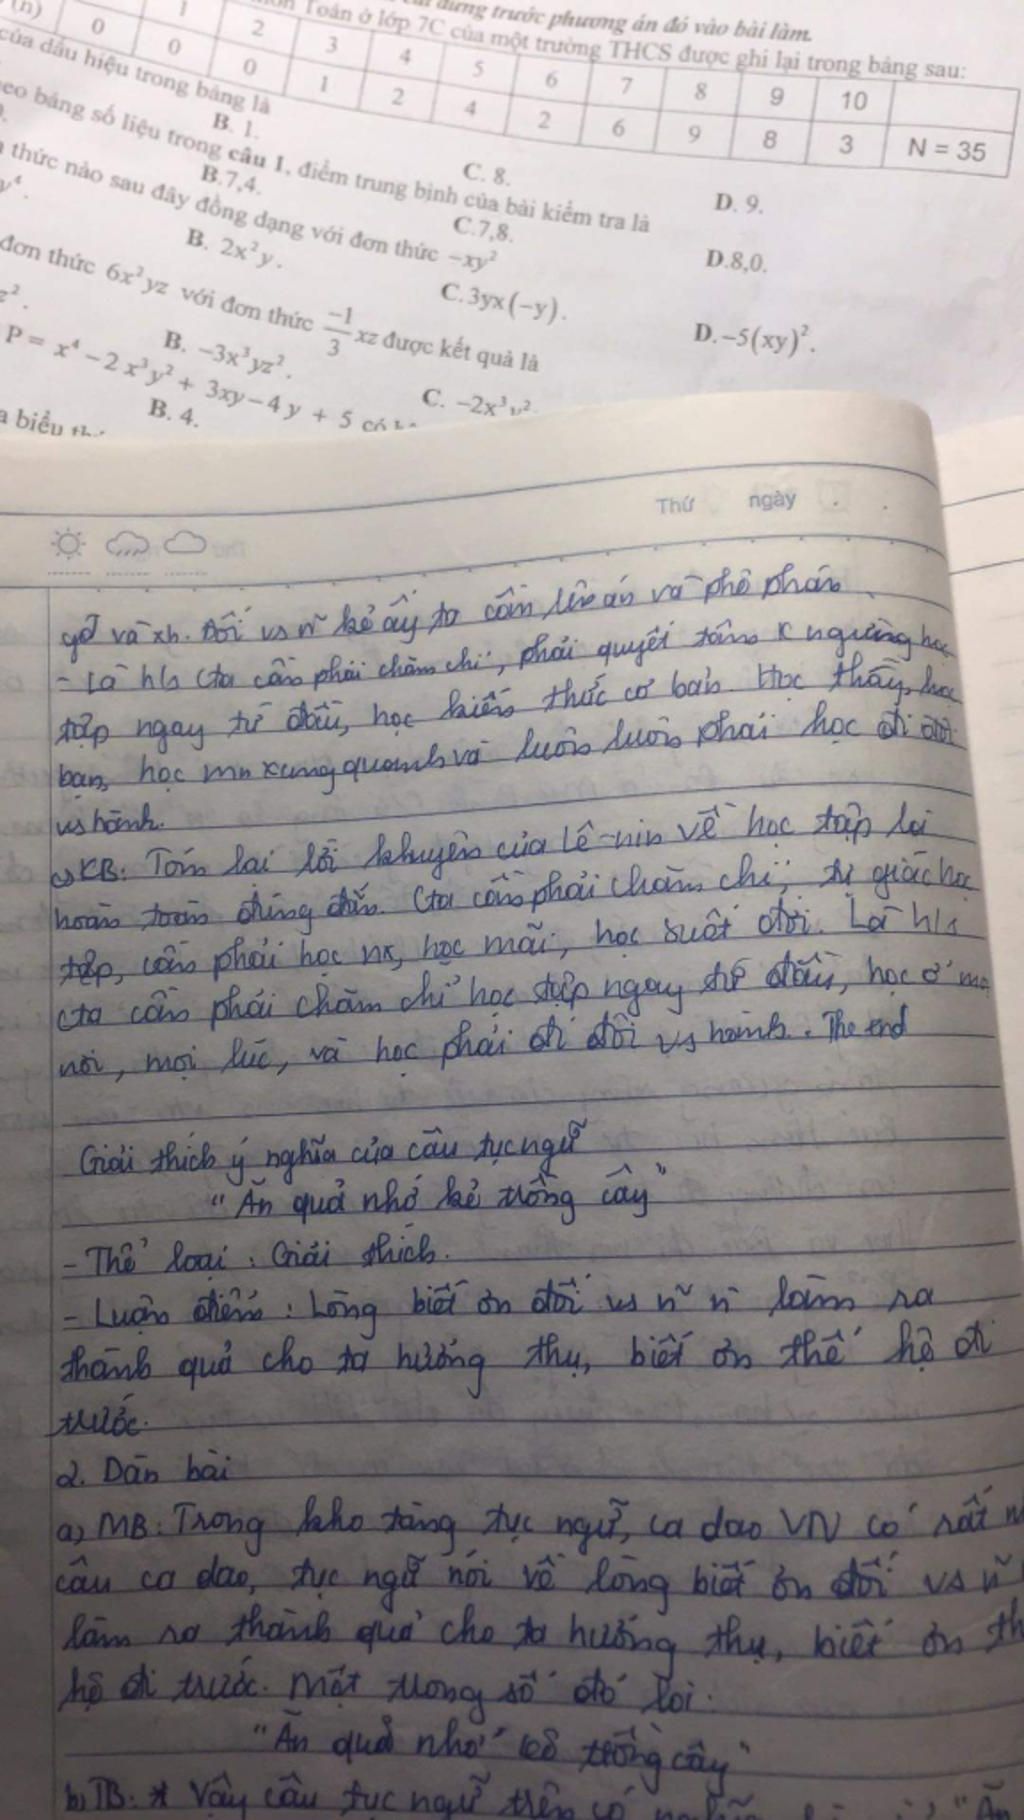 đứng trước phương án đó vào bài làm.
Toán ở lớp 7C của một trường THCS được ghi lại trong bảng sau:
(n) 0 1 2 3 4 5 6 7 8 9 10
0 0 1 2 4 2 6 9 8 3 N = 35
của dấu hiệu trong bảng là
B. 1. C. 8. D. 9.
eo bảng số liệu trong câu 1, điểm trung bình của bài kiểm tra là
B.7,4. C.7,8. D.8,0.
thức nào sau đây đồng dạng với đơn thức −xy²
y⁴. B. 2x²y. C.3yx(−y). D.−5(xy)².
đơn thức 6x²yz với đơn thức −1/3 xz được kết quả là
z². B. −3x³yz². C. −2x³y²
P = x⁴ − 2x³y² + 3xy − 4y + 5 có
B. 4.
a biểu
Thứ ngày
gđ và xh. Đối vs n~ kẻ ấy ta cần lên án và phê phán
- Là hls cta cần phải chăm chỉ, phải quyết tâm k ngừng học
tập ngay từ đầu, học kiến thức cơ bản. Học thầy, học
bạn, học mn xung quanh và luôn luôn phải học đi đôi
vs hành.
c) KB: Tóm lại lời khuyên của Lê-nin về học tập là
hoàn toàn đúng đắn. Cta cần phải chăm chỉ, tự giác học
tập, cần phải học nx, học mãi, học suốt đời. Là hls
cta cần phải chăm chỉ học tập ngay từ đầu, học ở mọ
nơi, mọi lúc, và học phải đi đôi vs hành. The end
Giải thích ý nghĩa của câu tục ngữ
"Ăn quả nhớ kẻ trồng cây"
- Thể loại : Giải thích.
- Luận điểm : Lòng biết ơn đối vs n~ n` làm ra
thành quả cho ta hưởng thụ, biết ơn thế hệ đi
trước.
2. Dàn bài
a) MB: Trong kho tàng tục ngữ, ca dao VN có rất n
câu ca dao, tục ngữ nói về lòng biết ơn đối vs n~
làm ra thành quả cho ta hưởng thụ, biết ơn th
hệ đi trước. Một trong số đó là:
"Ăn quả nhớ kẻ trồng cây"
b) TB: * Vậy câu tục ngữ trên có